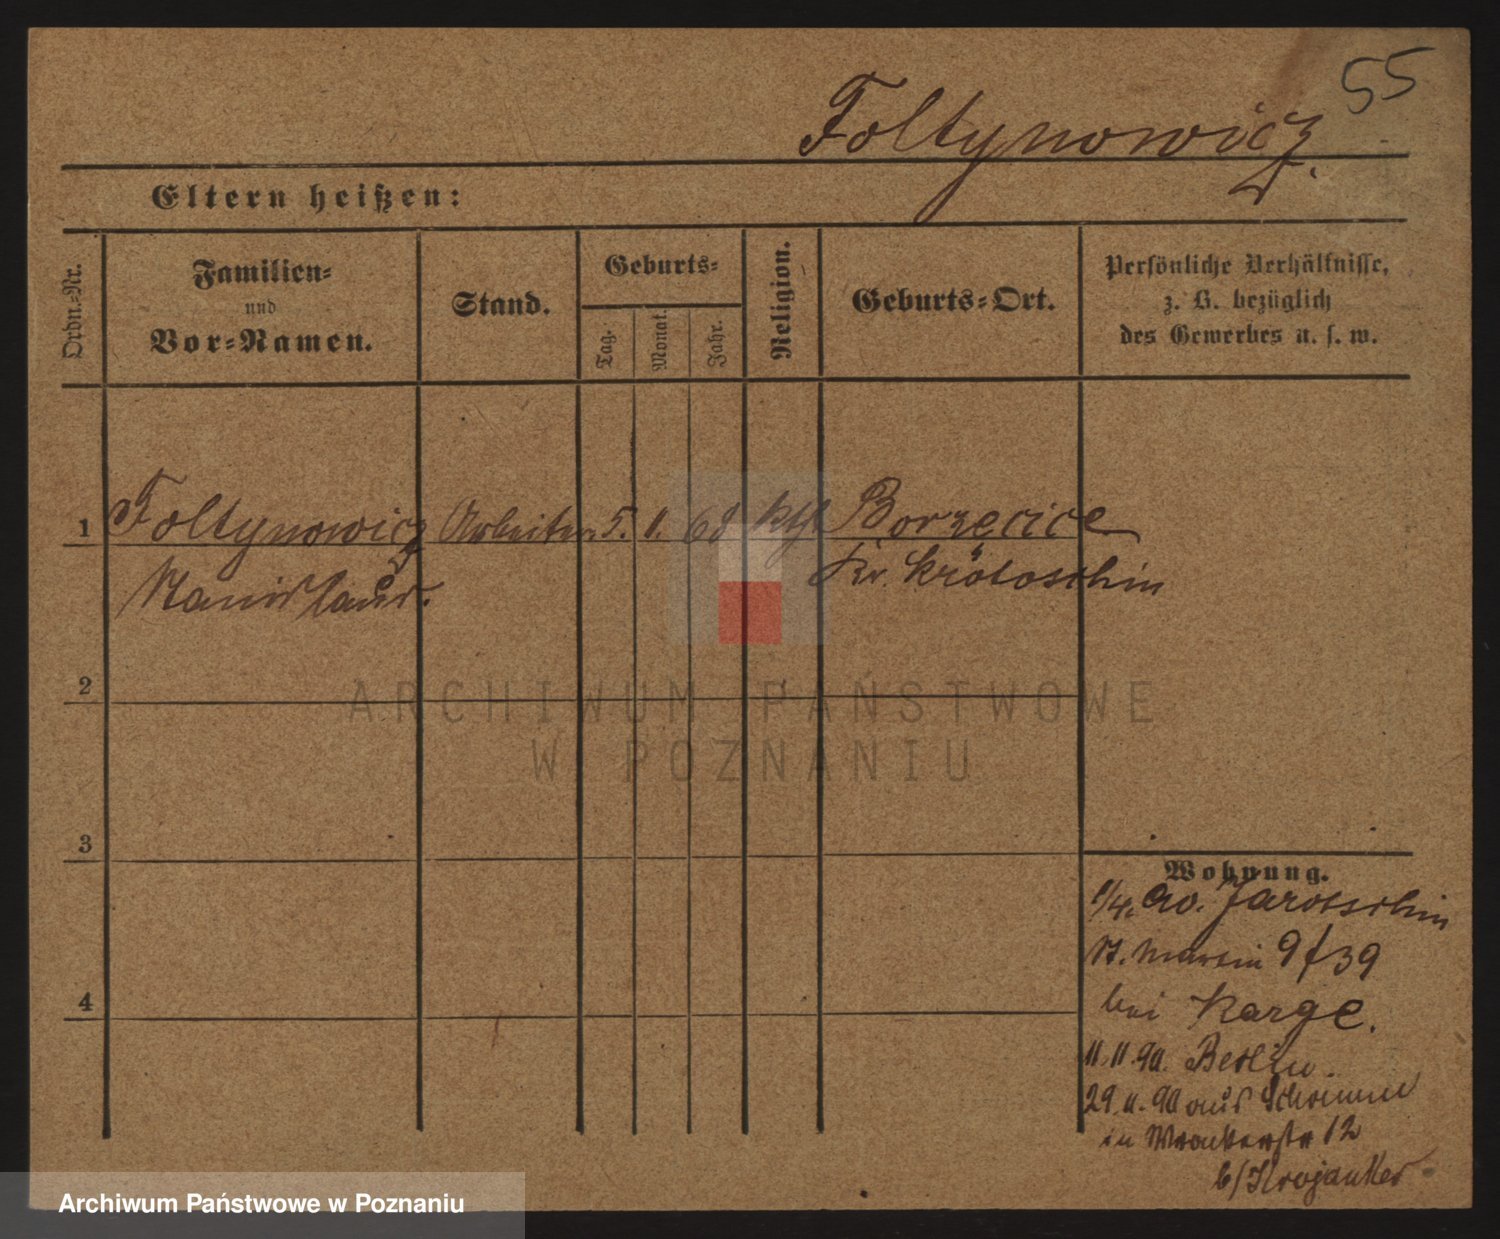 55
Foltynowicz.
Eltern heißen:
Ordn.-Nr.
Familien-
und
Vor-Namen.
Stand.
Geburts-
Tag.
Monat.
Jahr.
Religion.
Geburts-Ort.
Persönliche Verhältnisse,
z. B. bezüglich
des Gewerbes u. s. w.
1 Foltynowicz Arbeiter 5. 11. 68 ktl Borzecice
Stanislaus. Kr. Krotoschin
2
3
4
Wohnung.
1/4. 90. Jarotschin
St. Martin 9/39
bei Karge.
11.11.90. Berlin.
29.11.90 aus
in Wronkerstr 12
b/Krojanker
ARCHIWUM PAŃSTWOWE
W POZNANIU
Archiwum Państwowe w Poznaniu